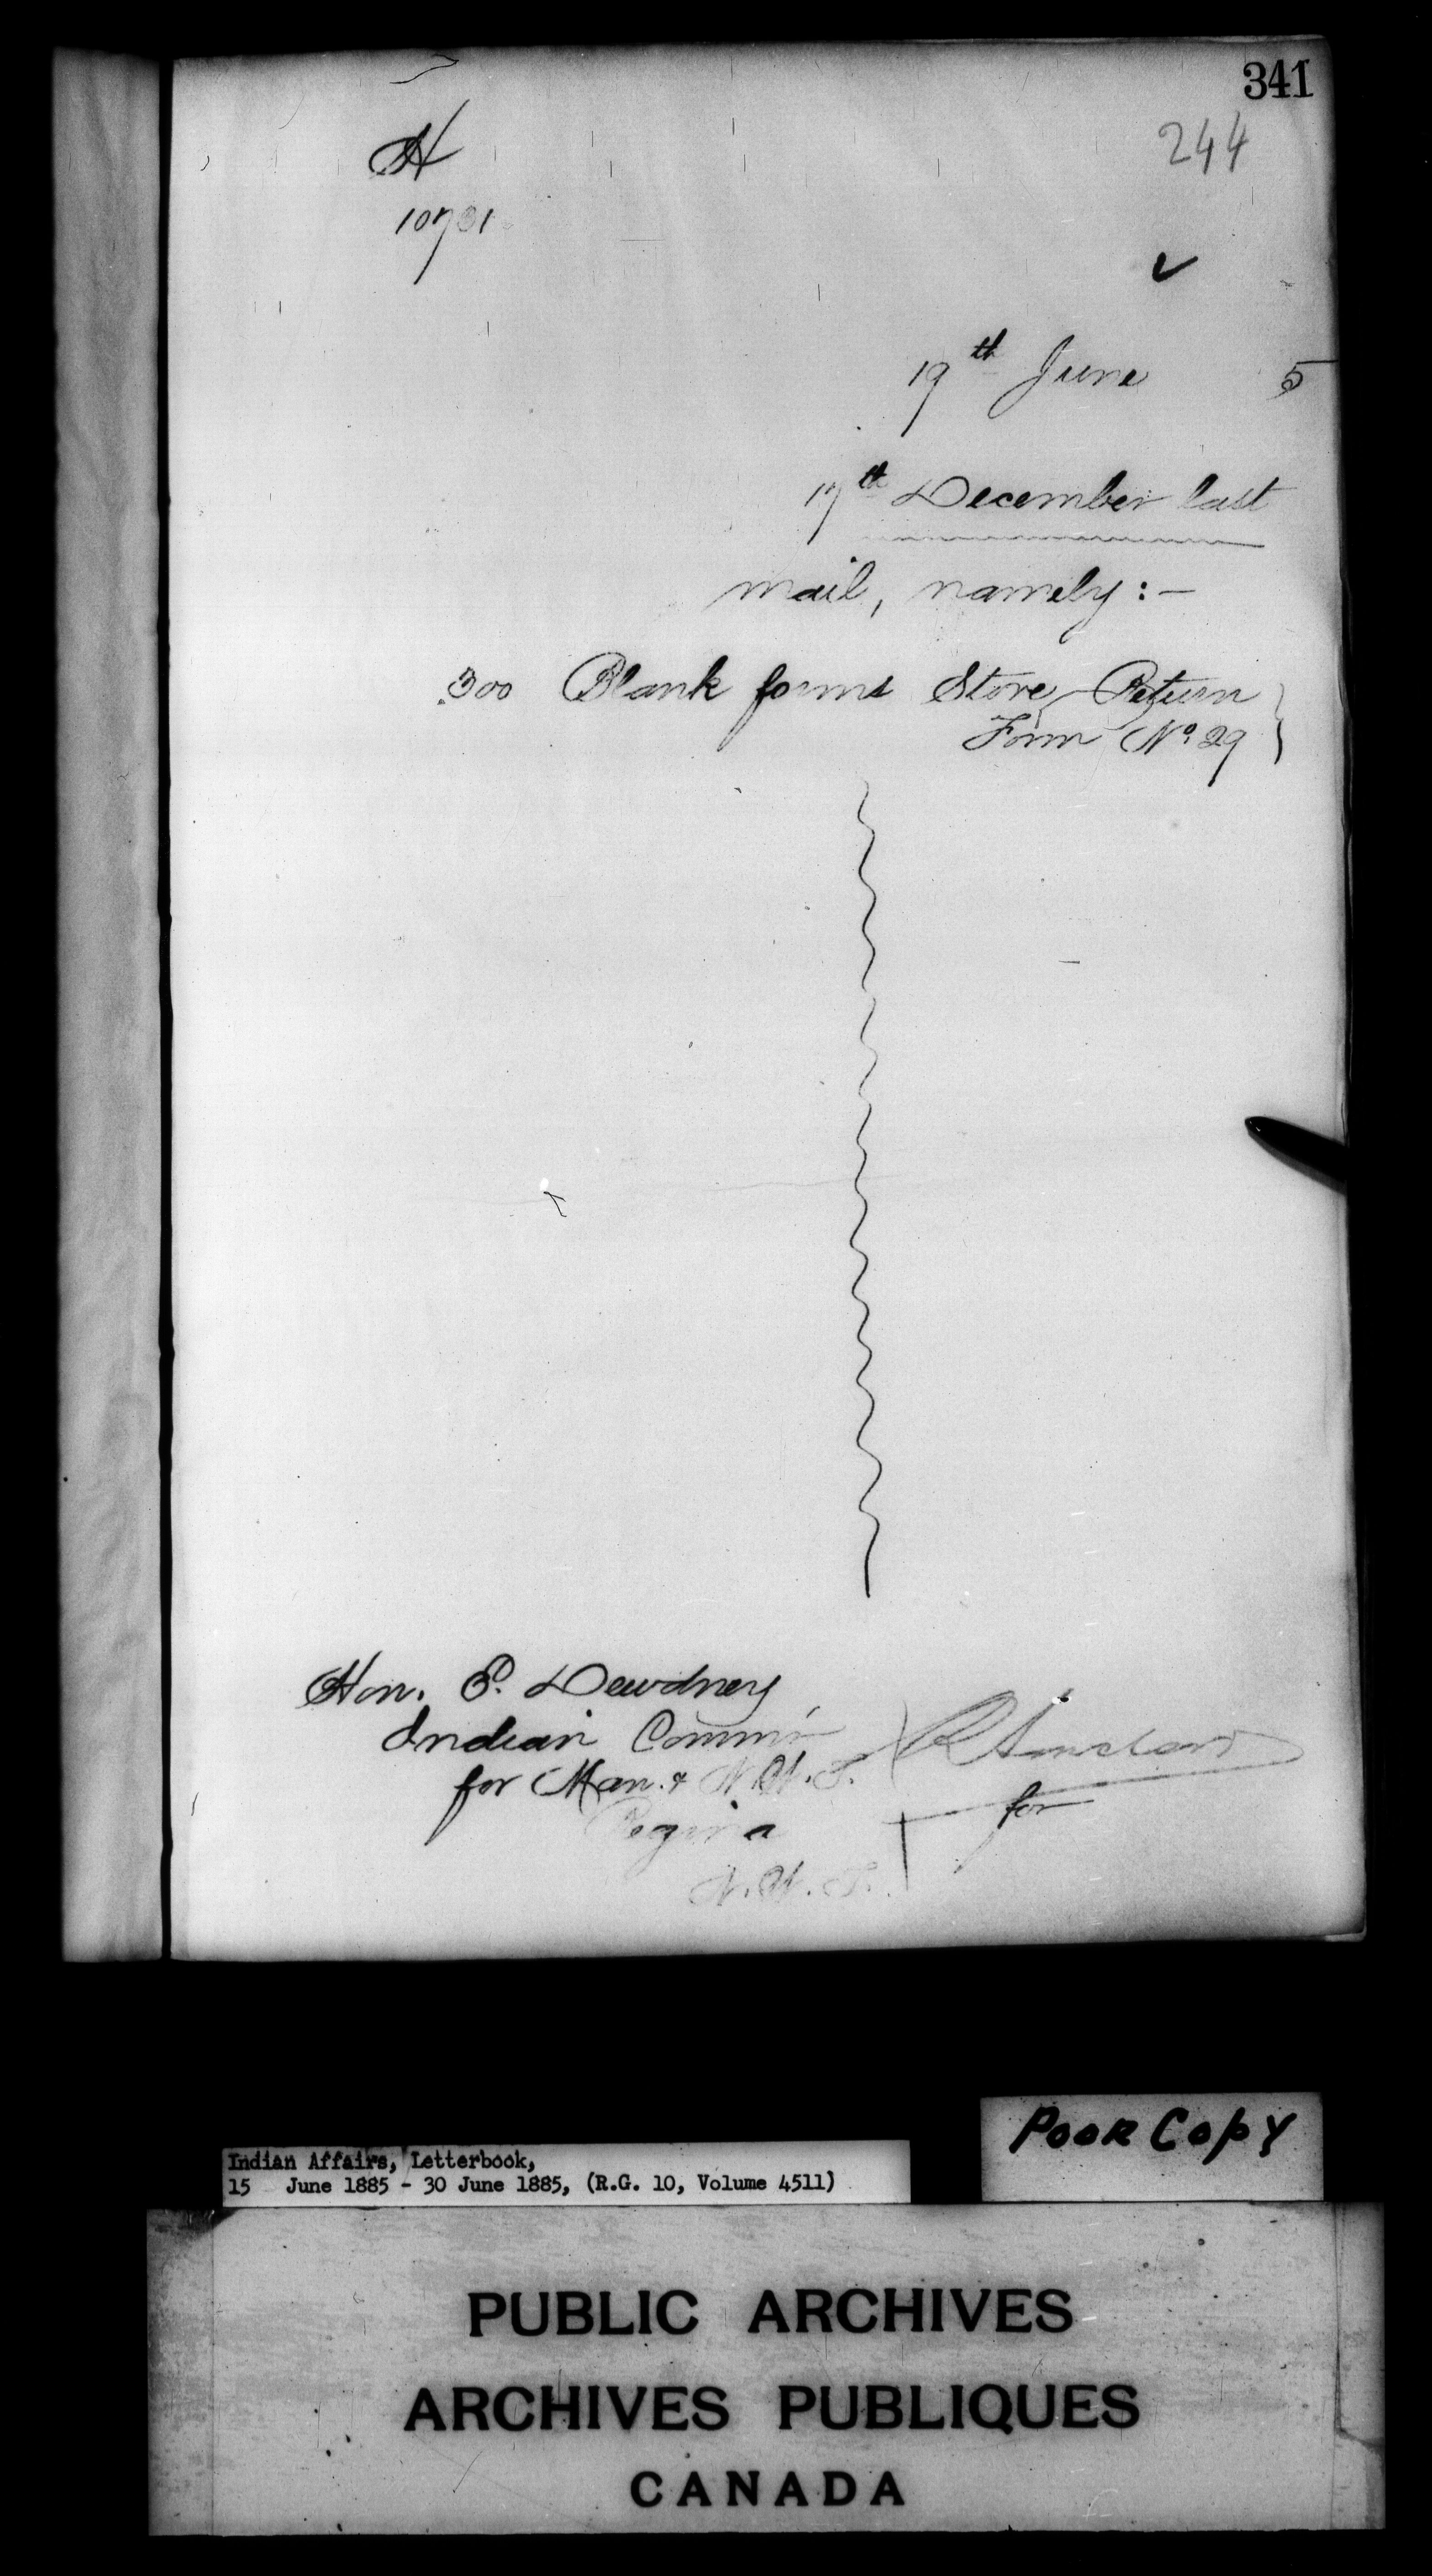 341
244
H
10731
19th June 5
17th December last
mail, namely:-
300 Blank forms Store Return
Form No. 29
Hon. E. Dewdney
Indian Commr
for Man. & N.W.T.
Regina
N.W.T.
R Sinclair
for
Poor Copy
Indian Affairs, Letterbook,
15 June 1885 - 30 June 1885, (R.G. 10, Volume 4511)
PUBLIC ARCHIVES
ARCHIVES PUBLIQUES
CANADA